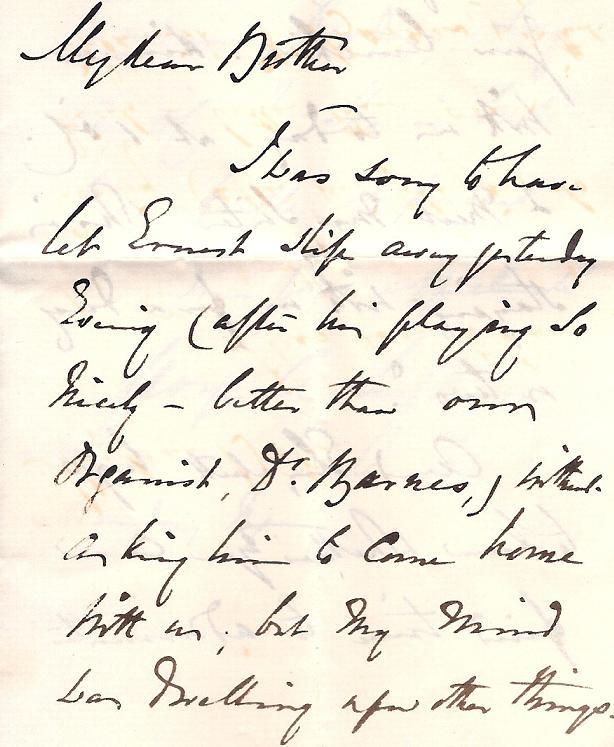 My dear Brother
I was sorry to have
let Ernest slip away yesterday
Evening (after his playing so
nicely – better than our
Organist, Dr. Barnes,) without
asking him to come home
with us; but my mind
was dwelling upon other things.